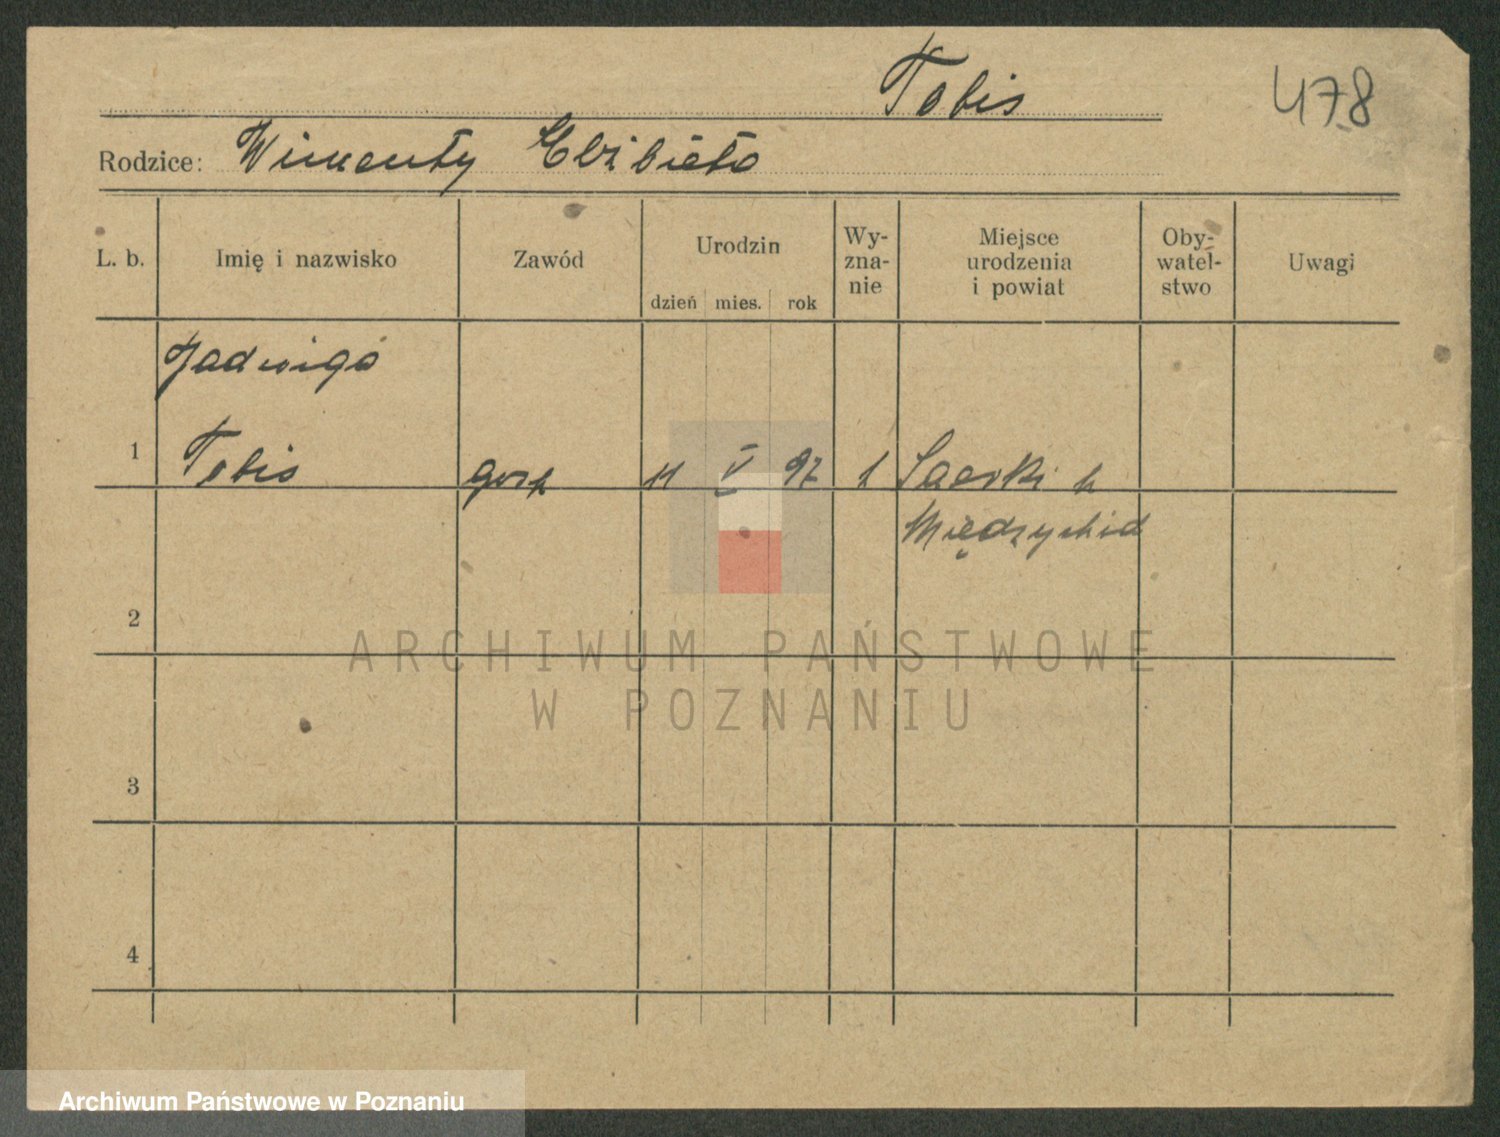 Tobis
478
Rodzice: Wincenty Elżbieta
L. b.
Imię i nazwisko
Zawód
Urodzin
dzień mies. rok
Wy-
zna-
nie
Miejsce
urodzenia
i powiat
Oby-
watel-
stwo
Uwagi
Jadwiga
1 Tobis gosp 11 V 97 k
Międzychód
2
3
4
ARCHIWUM PAŃSTWOWE
W POZNANIU
Archiwum Państwowe w Poznaniu